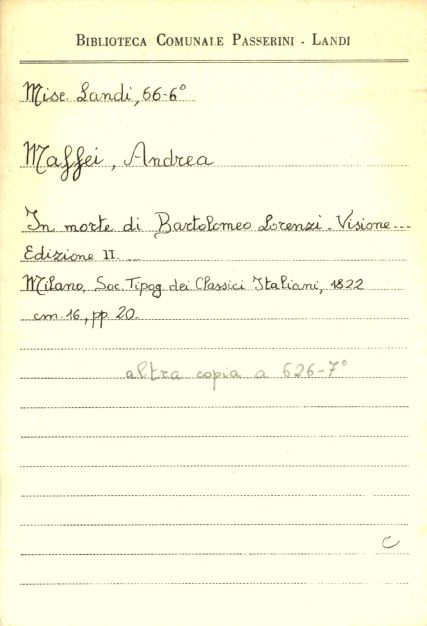 BIBLIOTECA COMUNALE PASSERINI - LANDI
Misc. Landi, 66-6°
Maffei, Andrea
In morte di Bartolomeo Lorenzi. Visione...
Edizione II. ...
Milano, Soc. Tipog. dei Classici Italiani, 1822
cm. 16, pp. 20.
altra copia a 626-7°
C